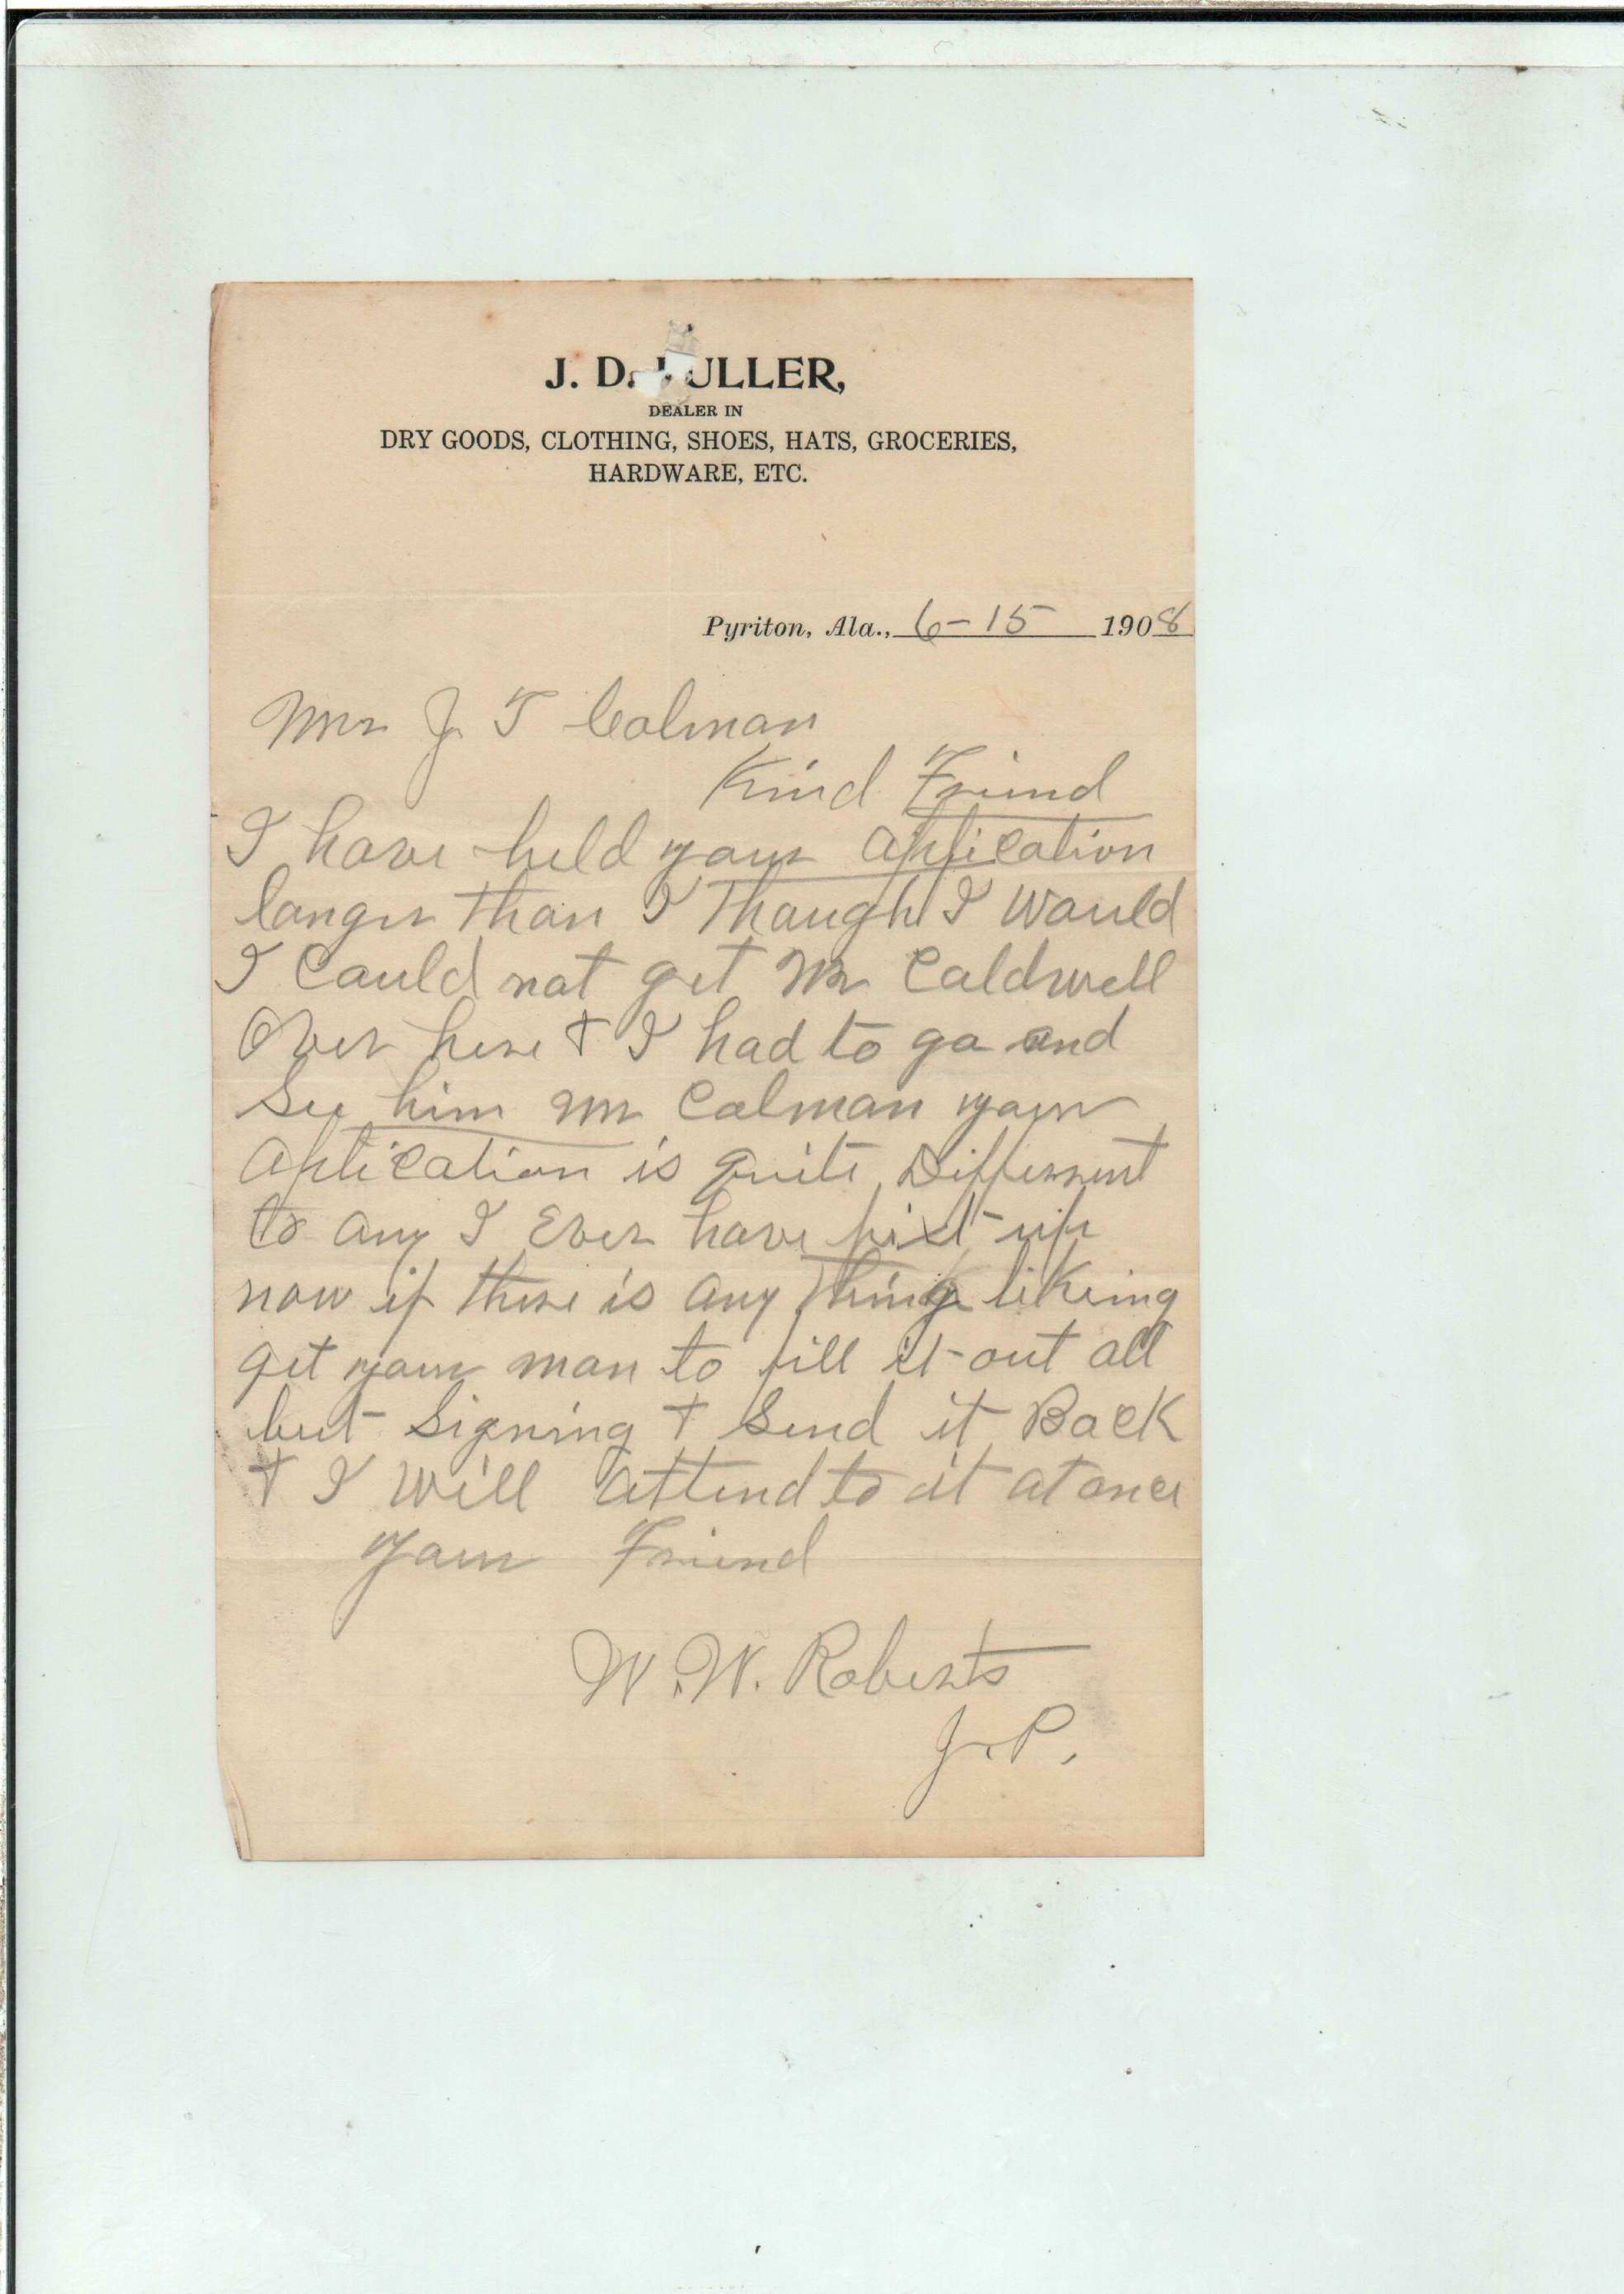 J. D. ULLER,
DEALER IN
DRY GOODS, CLOTHING, SHOES, HATS, GROCERIES,
HARDWARE, ETC.
Pyriton, Ala., 6-15 1908
J. T Colman
Kind Friend
I have held your Aplication
longer than I Though I would
I Could not get Mr Caldwell
Over here & I had to go and
See him Mr Colman your
Aplication is quite Differrent
to any I Ever have fixt up
now if there is any Thing likeing
get your man to fill it out all
but Signing & Send it Back
& I will attend to it at once
Your Friend
W. W. Roberts
J. P.